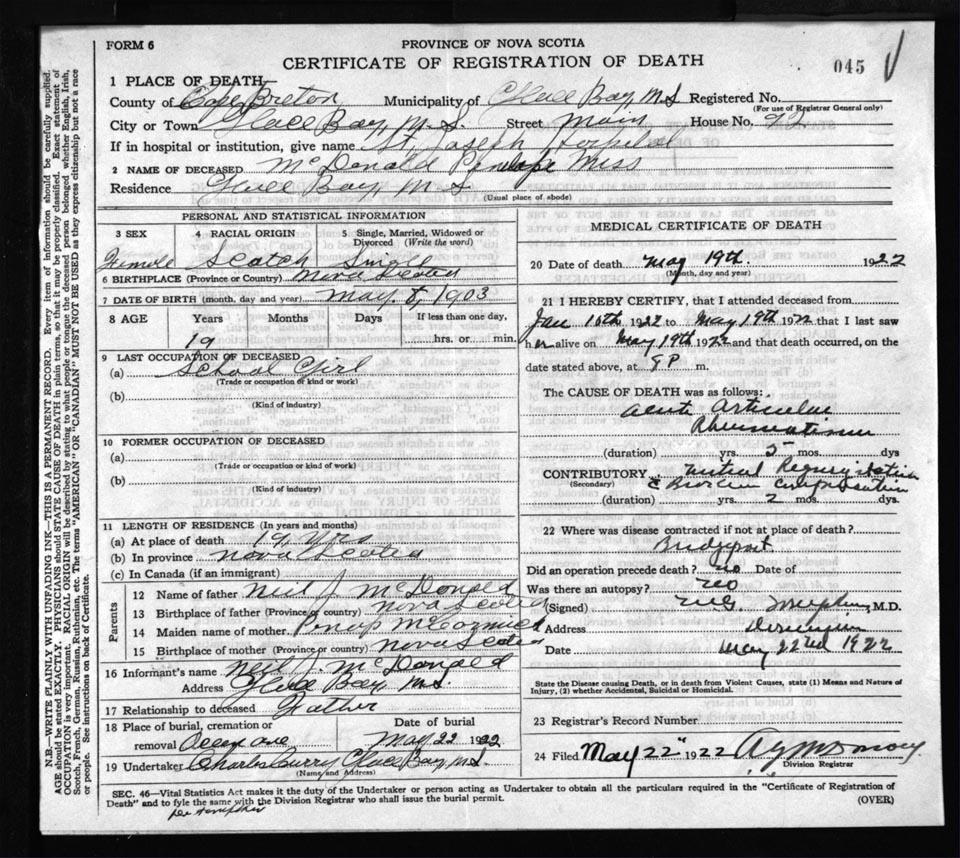 FORM 6
PROVINCE OF NOVA SCOTIA
CERTIFICATE OF REGISTRATION OF DEATH
045
1 PLACE OF DEATH—
County of Cape Breton Municipality of Glace Bay, N.S Registered No.
(For use of Registrar General only)
City or Town Glace Bay, N.S. Street Main House No. 92
If in hospital or institution, give name St. Joseph Hospital
2 NAME OF DECEASED McDonald Penelope Miss
Residence Glace Bay, N.S
(Usual place of abode)
PERSONAL AND STATISTICAL INFORMATION
3 SEX
4 RACIAL ORIGIN
5 Single, Married, Widowed or Divorced (Write the word)
Female Scotch Single
6 BIRTHPLACE (Province or Country) Nova Scotia
7 DATE OF BIRTH (month, day and year) May 8, 1903
8 AGE Years Months Days If less than one day,
19 hrs. or min.
9 LAST OCCUPATION OF DECEASED
(a) School Girl
(Trade or occupation or kind or work)
(b)
(Kind of industry)
10 FORMER OCCUPATION OF DECEASED
(a)
(Trade or occupation or kind of work)
(b)
(Kind of industry)
11 LENGTH OF RESIDENCE (In years and months)
(a) At place of death 19 Yrs
(b) In province Nova Scotia
(c) In Canada (if an immigrant)
Parents
12 Name of father Neil J. McDonald
13 Birthplace of father (Province or country) Nova Scotia
14 Maiden name of mother McCormick
15 Birthplace of mother (Province or country) Nova Scotia
16 Informant's name Neil J. McDonald
Address Glace Bay, N.S.
17 Relationship to deceased Father
18 Place of burial, cremation or removal
Date of burial
May 22 1922
19 Undertaker Charles Curry Glace Bay, N.S.
(Name and Address)
MEDICAL CERTIFICATE OF DEATH
20 Date of death May 19th 1922
(Month, day and year)
21 I HEREBY CERTIFY, that I attended deceased from
Jan 10th 1922 to May 19th 1922 that I last saw
her alive on May 19th 1922 and that death occurred, on the
date stated above, at 8 P m.
The CAUSE OF DEATH was as follows:
Acute Articular
Rheumatism
(duration) yrs. 5 mos. dys
CONTRIBUTORY Mitral Regurgitation
(Secondary) & Broken compensation
(duration) yrs. 2 mos. dys.
22 Where was disease contracted if not at place of death?
Bridgeport
Did an operation precede death? no Date of
Was there an autopsy? no
(Signed) M.D.
Address Dominion
Date May 22nd 1922
State the Disease causing Death, or in death from Violent Causes, state (1) Means and Nature of Injury, (2) whether Accidental, Suicidal or Homicidal.
23 Registrar's Record Number
24 Filed May 22" 1922
Division Registrar
SEC. 46—Vital Statistics Act makes it the duty of the Undertaker or person acting as Undertaker to obtain all the particulars required in the "Certificate of Registration of
Death" and to fyle the same with the Division Registrar who shall issue the burial permit.
(OVER)
N.B.—WRITE PLAINLY WITH UNFADING INK—THIS IS A PERMANENT RECORD. Every item of information should be carefully supplied.
AGE should be stated EXACTLY. PHYSICIANS should STATE CAUSE OF DEATH in plain terms, so that it may be properly classified. Exact statement of
OCCUPATION is very important. RACIAL ORIGIN will be described by stating to what people or tongue the deceased person belonged whether English, Irish,
Scotch, French, German, Russian, Ruthenian, etc. The terms "AMERICAN" OR "CANADIAN" MUST NOT BE USED as they express citizenship but not a race
or people. See instructions on back of Certificate.